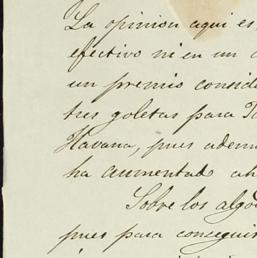 La opinion aqui es
efectivo ni en un
un premio conside
tres goletas para
Havana, pues adem
ha aumentado ah
Sobre los algo
pues para conseguir